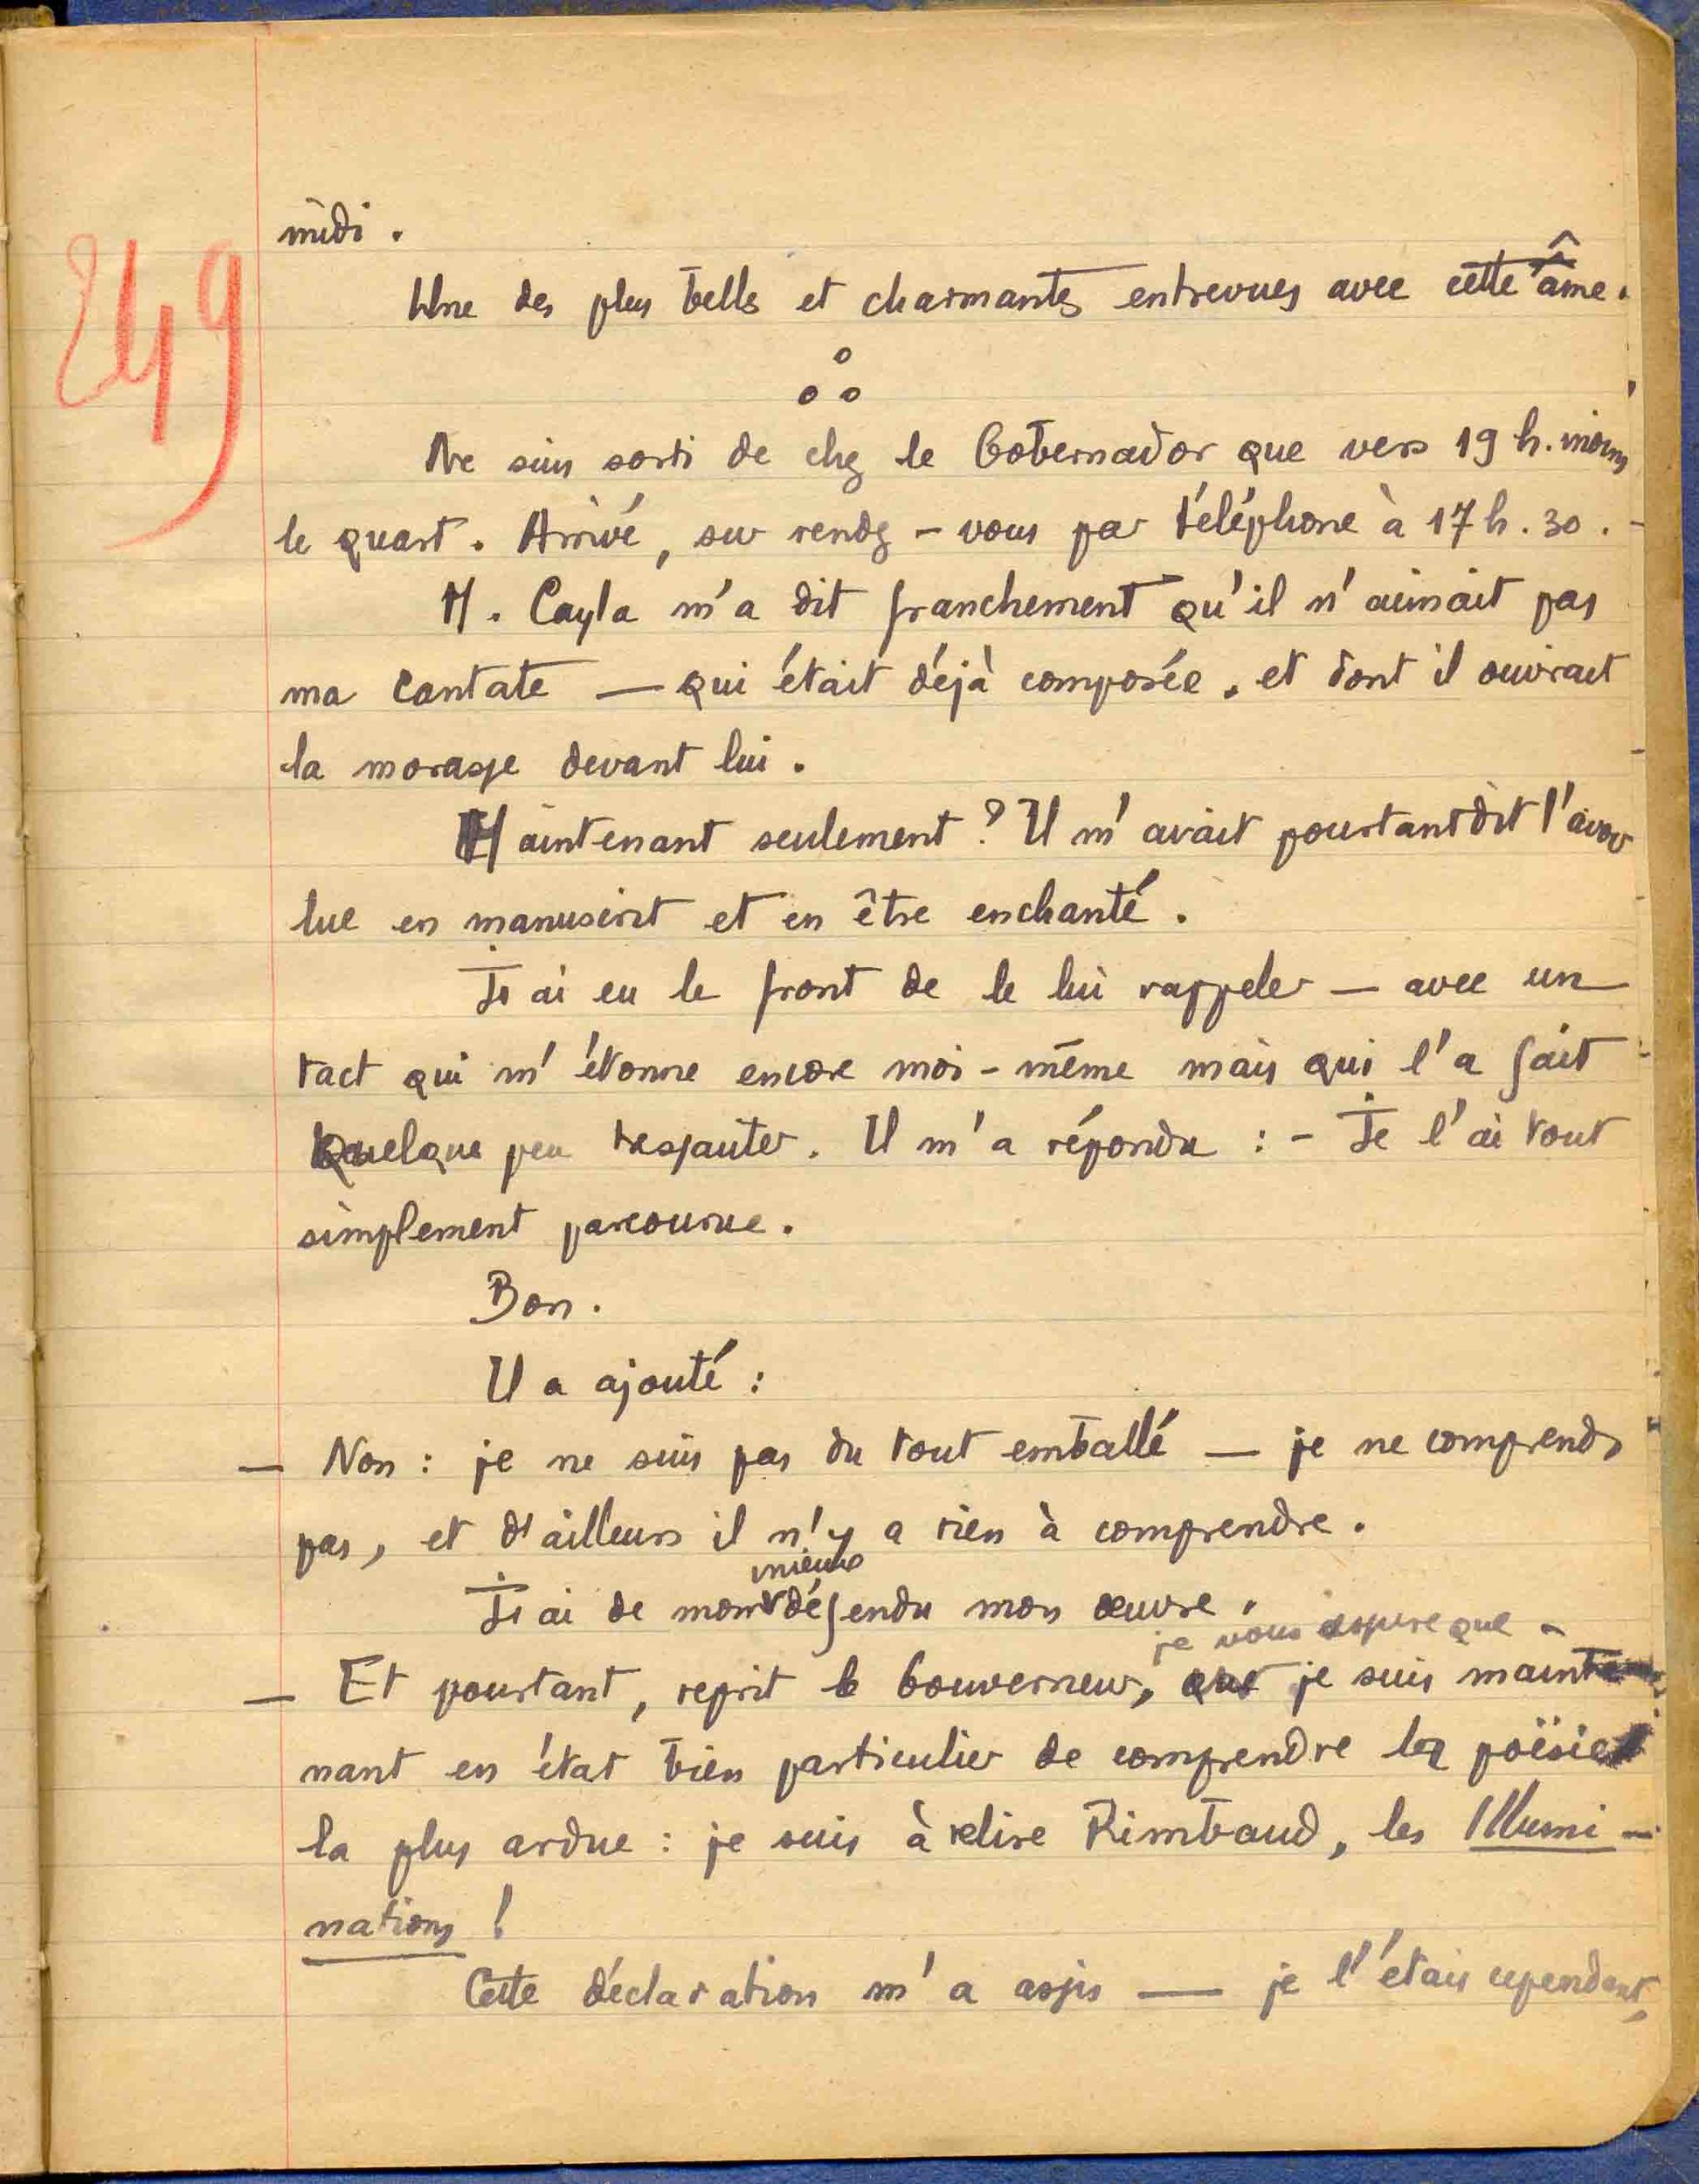 249
midi.
Une des plus belles et charmantes entrevues avec cette âme.
o
o o
Ne suis sorti de chez le Gobernador que vers 19 h. moins
le quart. Arrivé, sur rendez-vous par téléphone à 17 h. 30. -
M. Cayla m'a dit franchement qu'il n'aimait pas
ma cantate — qui était déjà composée, et dont il ouvrait
la morasse devant lui.
Maintenant seulement ? Il m'avait pourtant dit l'avoir
lue en manuscrit et en être enchanté.
J'ai eu le front de le lui rappeler — avec un
tact qui m'étonne encore moi-même mais qui l'a fait
quelque peu tressauter. Il m'a répondu : - Je l'ai tout
simplement parcourue.
Bon.
Il a ajouté :
— Non : je ne suis pas du tout emballé — je ne comprends
pas, et d'ailleurs il n'y a rien à comprendre.
mieux
J'ai de mon défendu mon œuvre.
je vous assure que
— Et pourtant, reprit le Gouverneur, que je suis mainte
nant en état bien particulier de comprendre la poësie
la plus ardue : je suis à relire Rimbaud, les Illumi-
nations !
Cette déclaration m'a assis — je l'étais cependant,